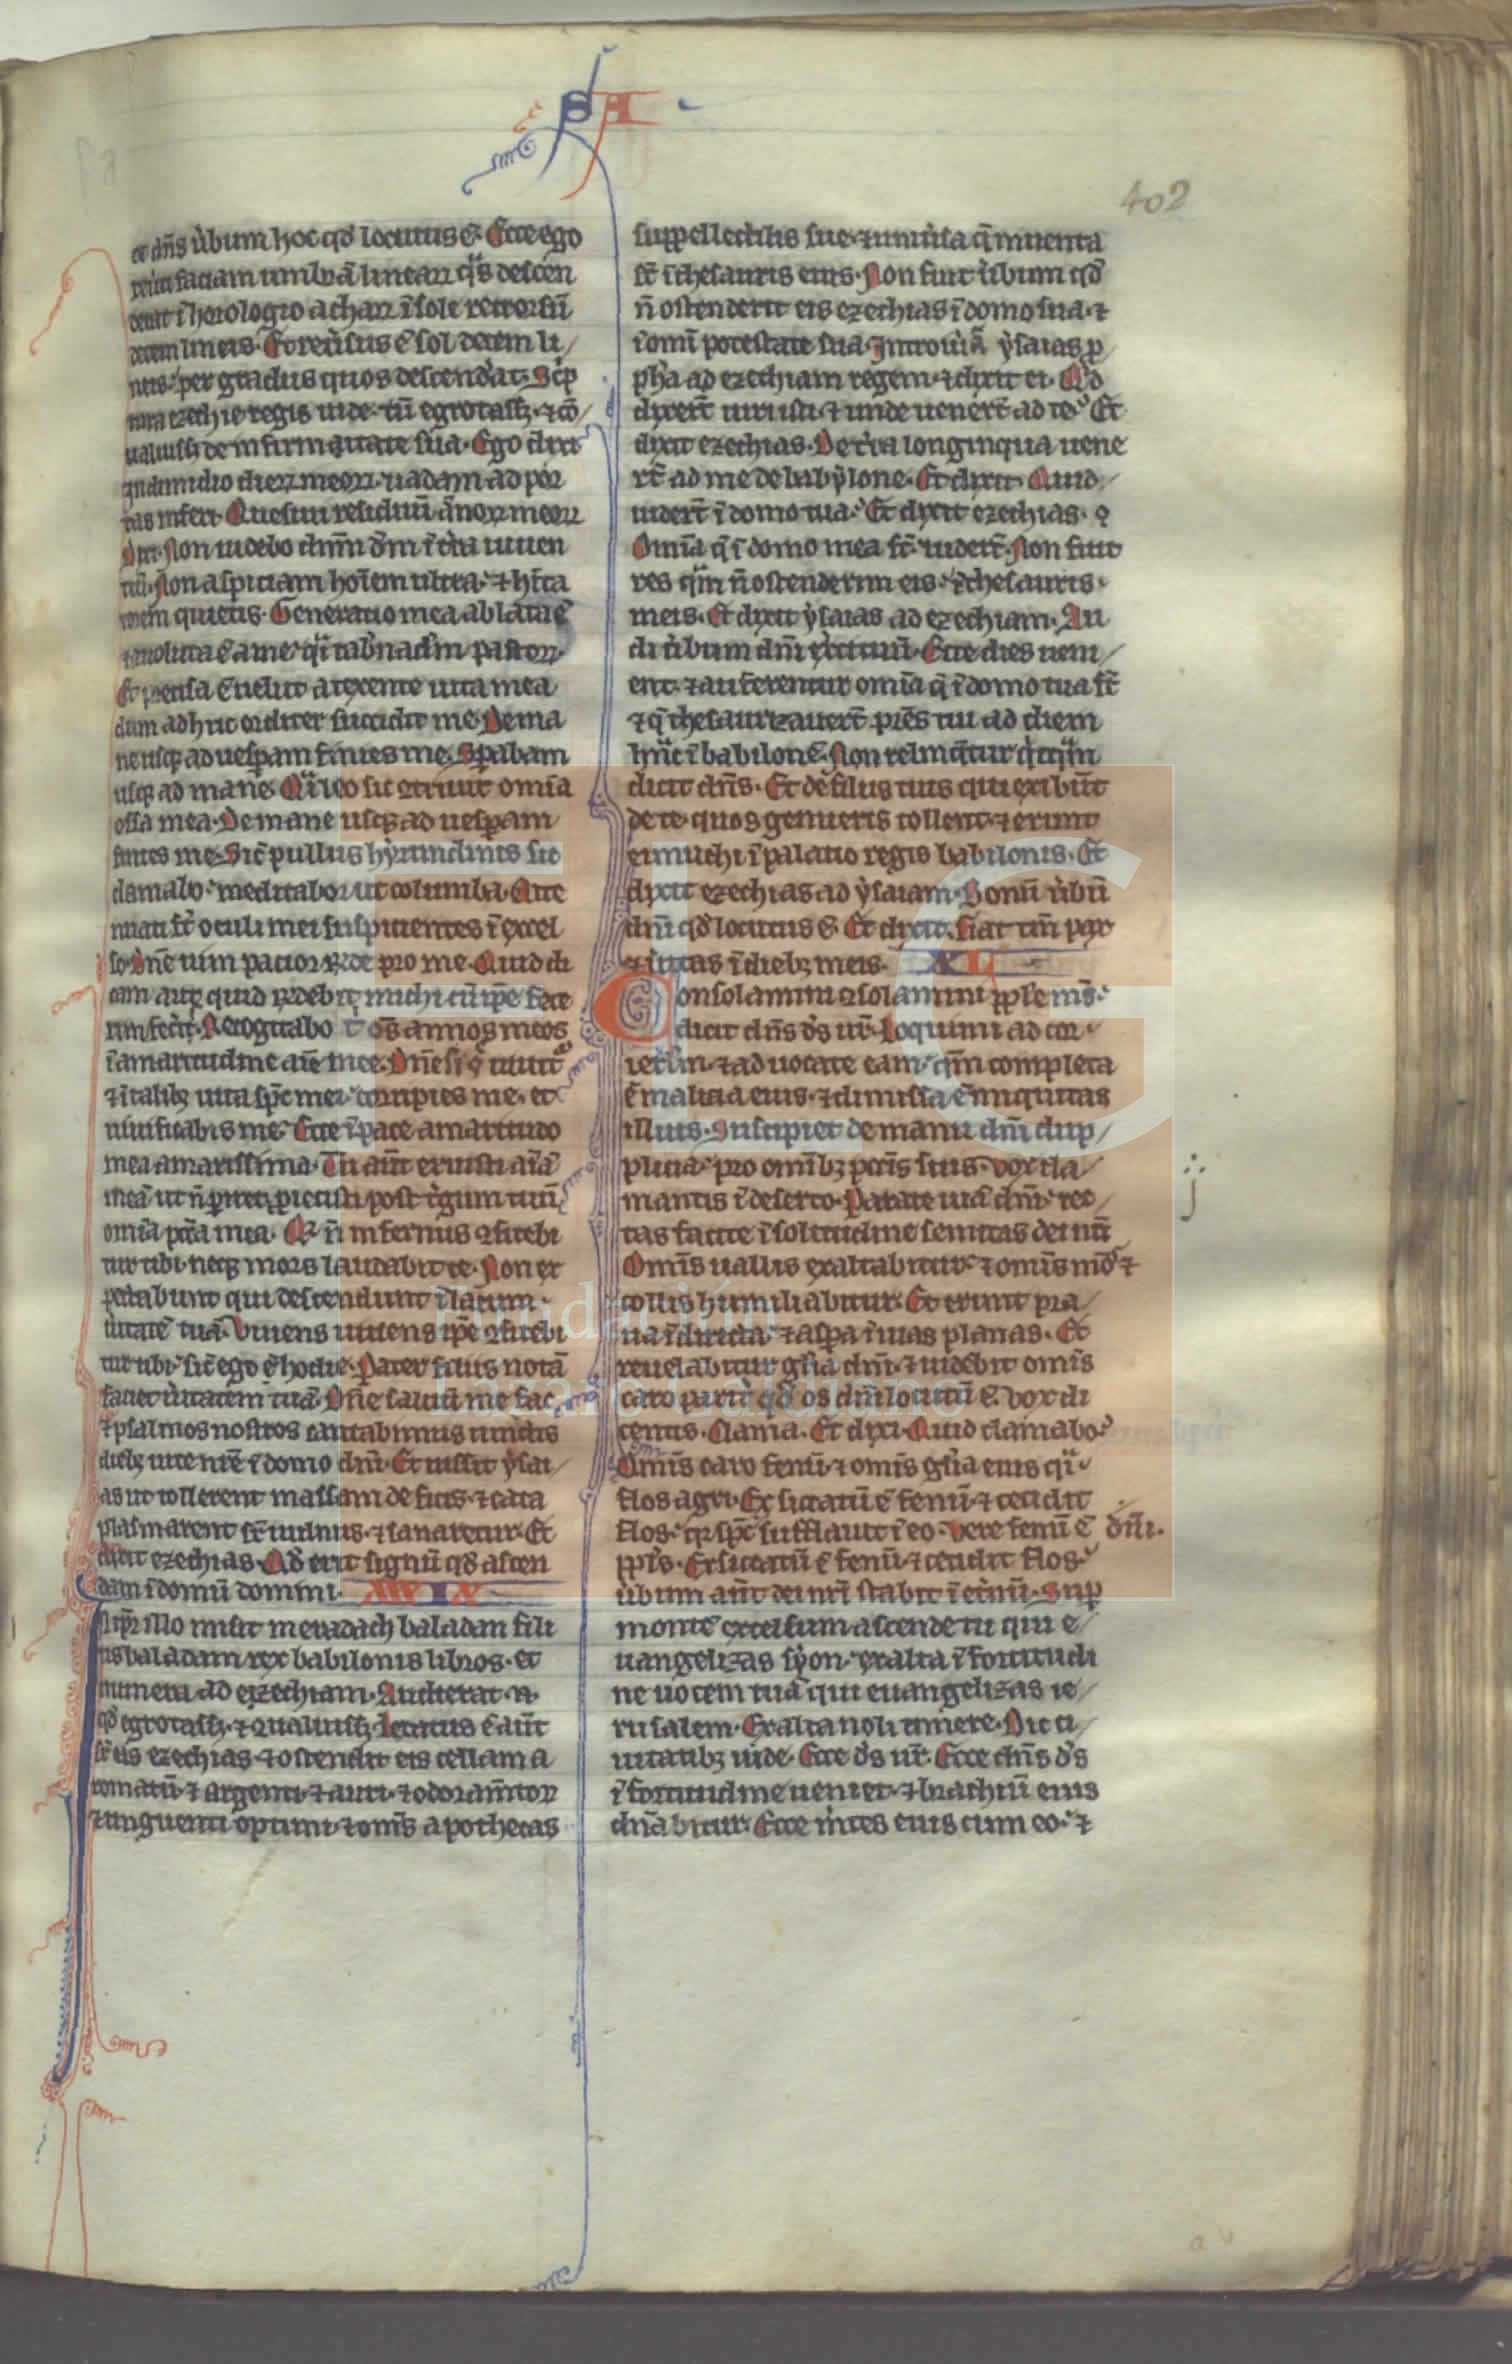 SA
402
et dñs ùbum hoc qđ locutus ẽ. Ecce ego
reũti faciam umbrã lineaꝝ ꝗ̈s descen
derat ĩ horologio achaz ĩ sole retrorsũ
decem lineis. Et reũsus ẽ sol decem li
neis. per gradus quos descenđat. Sc̃p
tura ezechie regis iude. cũ egrotass; ⁊ cõ
ualuiss; de infirmitate sua. Ego dixi
in dimidio dieꝝ meoꝝ uadam ad por
tas inferi. Quesiui residuũ ãnoꝝ meoꝝ
Dixi. Non uidebo dnm̃ dm̃ ĩ t̃ra uiuen
tiũ. Non aspiciam hoĩem ultra. ⁊ hĩta
torem quietis. Generatio mea ablata ẽ
⁊ ꝯuoluta ẽ a me. q̈ı tabñaclm̃ pastoꝝ.
Et p̃cisa ẽ uelut a texente uita mea
dum adhuc ordirer succidit me. De ma
ne usq; ad uesp̃am finies me. Sp̃abam
usq; ad mane. Q̈ı leo sic ꝯtriuit omĩa
ossa mea. De mane usq; ad uesp̃am
finies me. Sic̃ pullus hyrundinis sic
clamabo. meditabor ut columba. Atte
nuati st̃ oculi mei suspicientes ĩ excel
so. Dñe uim patior rñde pro me. Quid di
cam aut quid rñdebit michi cũ ip̃e fece
rim fecit. Recogitabo t̃ os̃ annos meos
ĩ amaritudine aĩe mee. Dñe si q̃ uiuit̃
⁊ ĩ talib; uita sp̃c mei. corripies me. et
uiuificabis me. Ecce ĩ pace amaritudo
mea amarissima. Tu aũt eruisti aĩã
meã ut ñ ꝑiret ꝓiecisti post t̃gum tuũ
omĩa pc̃ta mea. Q̃ ñ infernus ꝯfitebi
tur tibi. neq; mors laudabit te. Non ex
pectabunt qui descendunt ĩ lacum.
ùitatẽ tuã. Viuens uiuens ip̃e ꝯfitebi
tur tibi. sic̃ ego ẽ hodie. Pater filiis notã
faciet ùitatem tuã. Dñe saluũ me fac
⁊ psalmos nostros cantabimus cunctis
dieb; uite nr̃e ĩ domo dñi. Et iussit ẏsai
as ut tollerent massam de ficis. ⁊ cata
plasmarent sr̃ uulnus. ⁊ sanaretur. Et
dixit ezechias. Qđ erit signũ qđ ascen
dam ĩ domũ domini. XXXIX
In tp̃r illo misit merodach baladan fili
us baladam rex babilonis libros. et
munera ad ezechiam. Audierat .n.
qđ egrotass; ⁊ ꝯualuiss; Letatus ẽ aũt
sr̃ eis ezechias ⁊ ostendit eis cellam a
romatũ. ⁊ argenti. ⁊ auri. ⁊ odoram̃toꝝ
⁊ unguenti optimi. ⁊ omĩs apothecas
suppellectilis sue. ⁊ uniũsa q̃ inuenta
st̃ ĩ thesauris eius. Non fuit ùbum qđ
ñ ostenderit eis ezechias ĩ domo sua. ⁊
ĩ omĩ potestate sua. Introiuit ẏsaias ꝓ
ph̃a ad ezechiam regem. ⁊ dixit ei. Qđ
dixert̃ uiri isti. ⁊ unde uenert̃ ad te. Et
dixit ezechias. De t̃ra longinqua uene
rt̃ ad me de babẏlone. Et dixit. Quid
uidert̃ ĩ domo tua. Et dixit ezechias.
Omĩa q̃ ĩ domo mea st̃ uidert̃. Non fuit
res qm̃ ñ ostenderim eis. ĩ thesauris
meis. Et dixit ẏsaias ad ezechiam. Au
di ùbum dñi exercituũ. Ecce dies ueni
ent. ⁊ auferentur omĩa q̃ ĩ domo tua st̃
⁊ q̃ thesaurizauert̃ pr̃es tui ad diem
hũc ĩ babilonẽ. Non relinq̃tur q̃cq̈m
dicit dñs. Et de filiis tuis qui exibũt
de te. quos genueris tollent. ⁊ erunt
eunuchi ĩ palatio regis babilonis. Et
dixit ezechias ad ẏsaiam. Bonũ ùbũ
dñi qđ locutus ẽ. Et dixit. fiat tm̃ pax
⁊ ùitas ĩ dieb; meis. XL
Consolamini ꝯsolamini ppl̃e mĩs.
dicit dñs ds̃ ur̃. Loquimi ad cor
ierl̃m. ⁊ aduocate eam. qm̃ completa
ẽ malicia eius. ⁊ dimissa ẽ iniquitas
illius. Suscepit de manu dñi dup
plicia. pro omĩb; pcc̃is suis. Vox cla
mantis ĩ deserto. Parate uiã dñi. rec
tas facite ĩ solitudine semitas dei nr̃i
Omĩs uallis exaltabitur. ⁊ omĩs mõs ⁊
collis humiliabitur. Et erunt pra
ua ĩ directa. ⁊ asp̃a ĩ uias planas. Et
reuelabitur gl̃ia dñi. ⁊ uidebit omĩs
caro parit̃ qđ os dñi locutũ ẽ. Vox di
centis. Clama. Et dixi. Quid clamabo.
Omĩs caro fenũ. ⁊ omĩs gl̃ia eius q̈ı
flos agri. Exsiccatũ ẽ fenũ. ⁊ cecidit
flos. qr̃ sp̃c sufflauit ĩ eo. Vere fenũ ẽ dñi.
ppl̃s. Exsiccatũ ẽ fenũ. ⁊ cecidit flos.
ùbum aũt dei nr̃i stabit ĩ et̃nũ. Sup̃
montẽ excelsum ascende tu qui e
uangelizas sẏon. exalta ĩ fortitudi
ne uocem tuã qui euangelizas ie
rusalem. Exalta noli timere. Dic ci
uitatib; iude. Ecce ds̃ ur̃. Ecce dñs ds̃
ĩ fortitudine ueniet. ⁊ brachiũ eius
dñabitur. Ecce m̃ces eius cum eo. ⁊
FLG
Fundación
Lázaro Galdiano